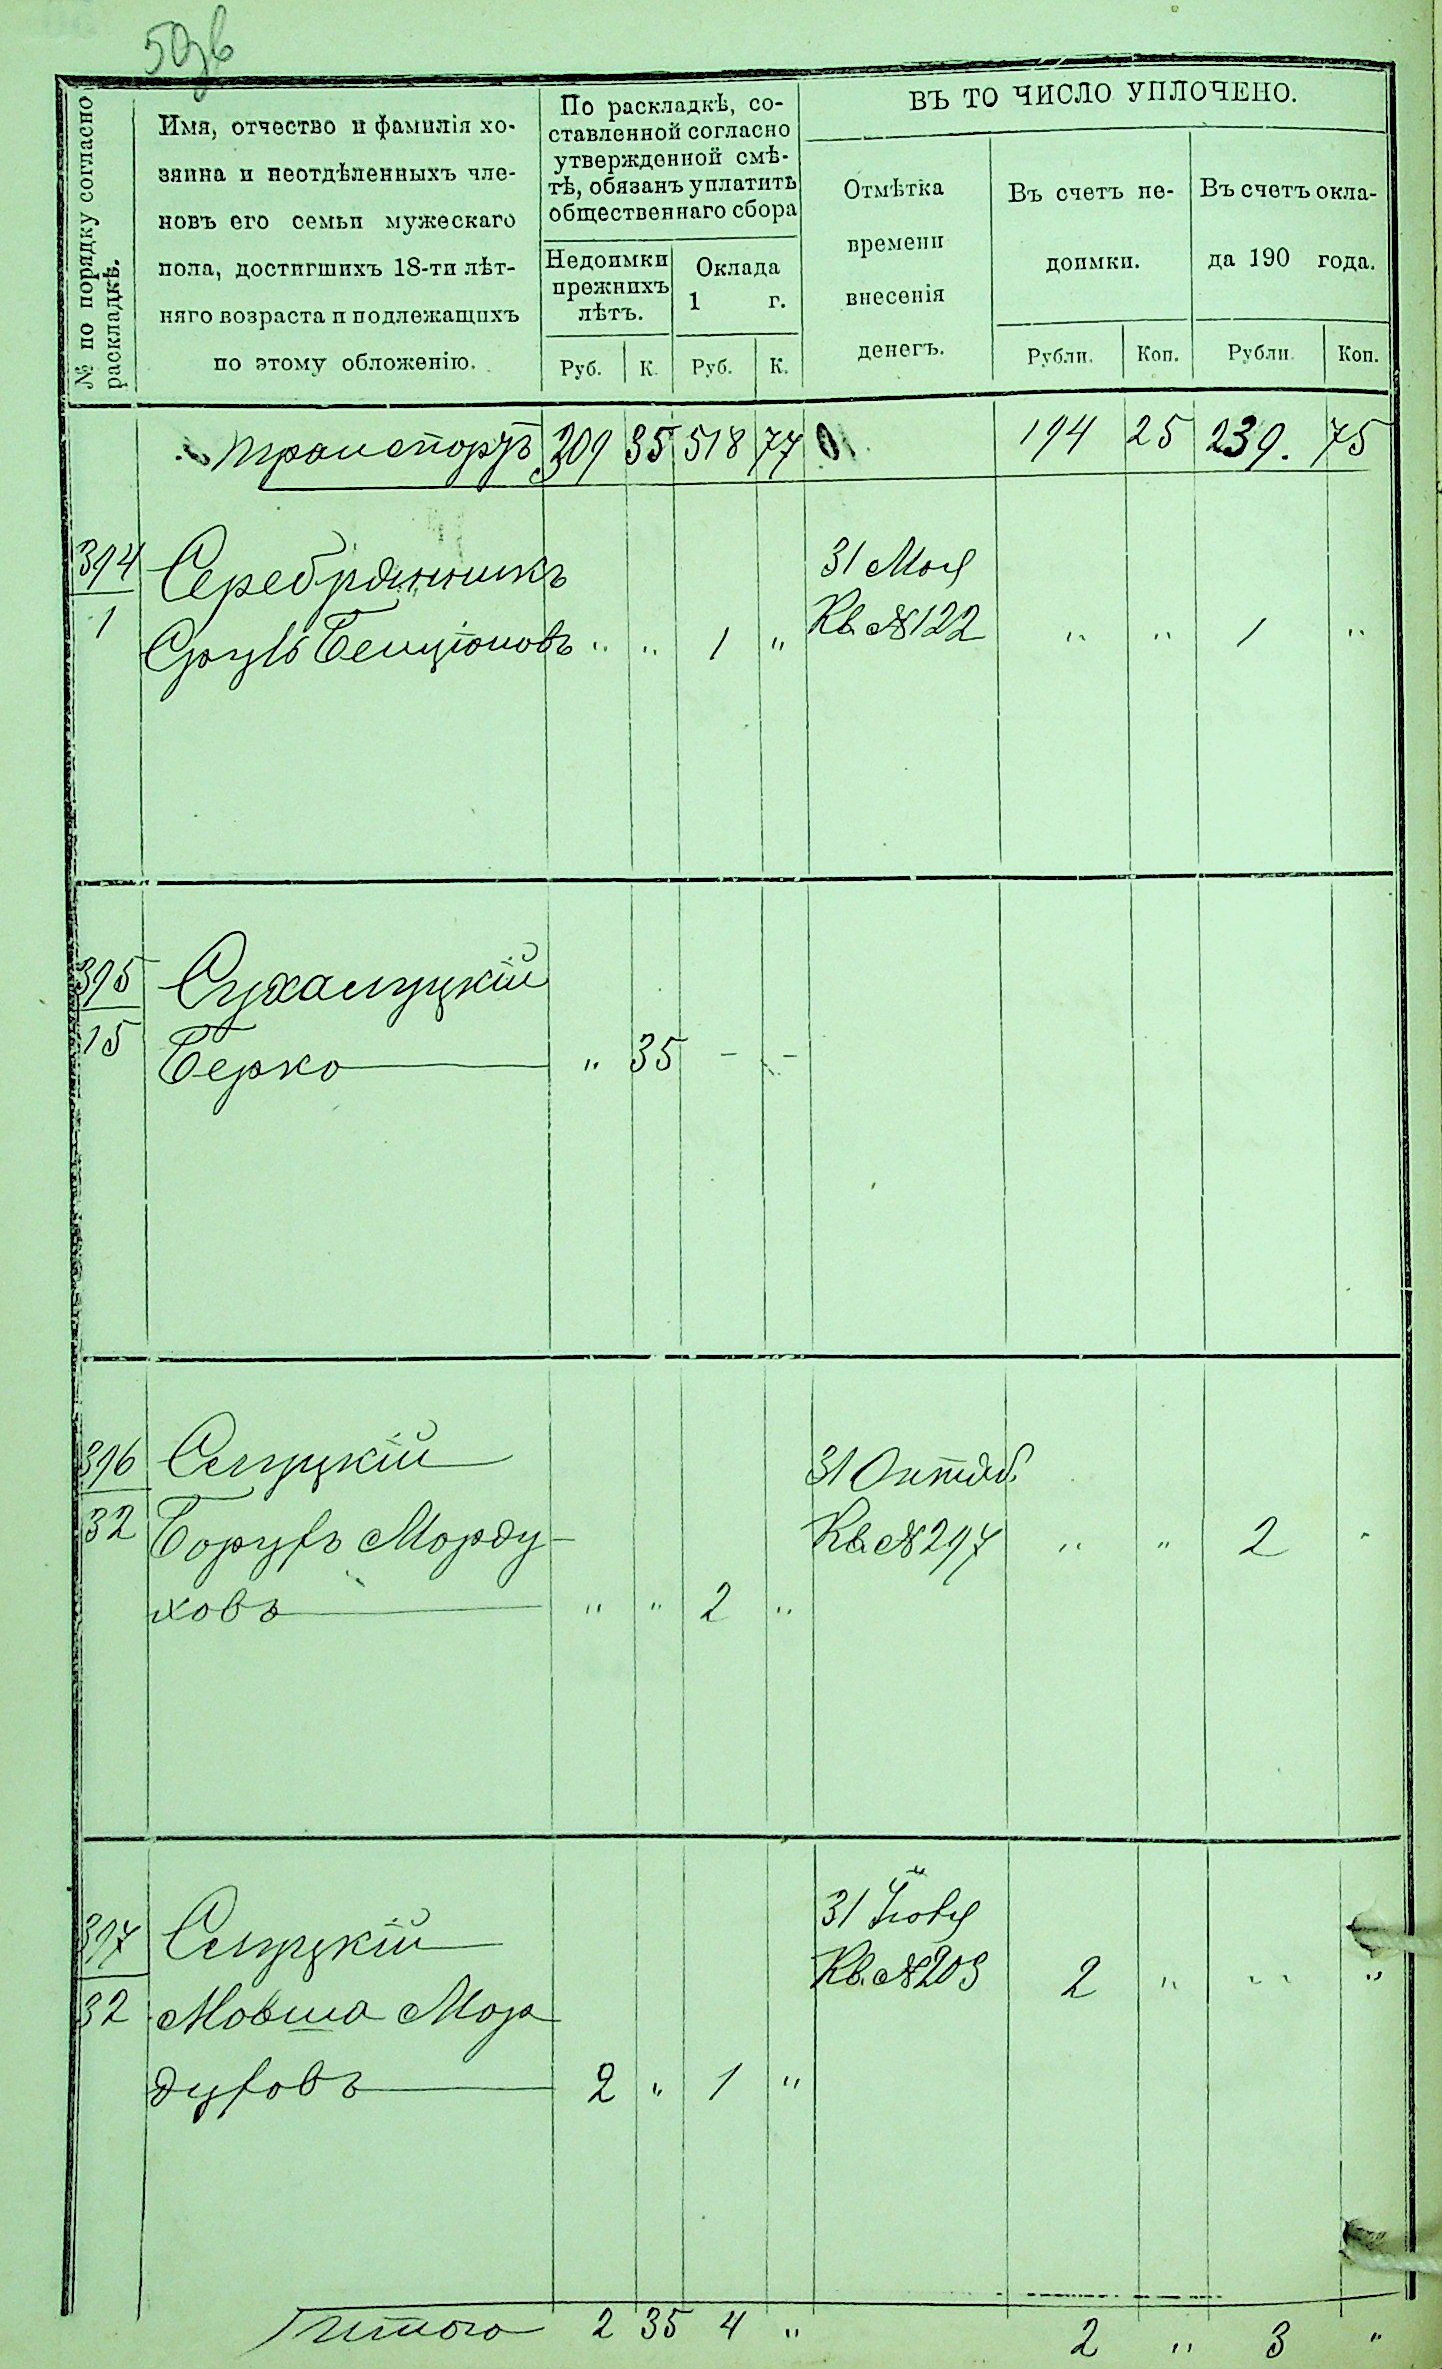 59об
№ по порядку согласно
раскладкѣ.
Имя, отчество и фамилія хо-
зяина и неотдѣленныхъ чле-
новъ его семьи мужескаго
пола, достигшихъ 18-ти лѣт-
няго возраста и подлежащихъ
по этому обложенію.
По раскладкѣ, со-
ставленной согласно
утвержденной смѣ-
тѣ, обязанъ уплатить
общественнаго сбора
Недоимки
прежнихъ
лѣтъ.
Оклада
1 г.
Руб. К. Руб. К.
ВЪ ТО ЧИСЛО УПЛОЧЕНО.
Отмѣтка
времени
внесенія
денегъ.
Въ счетъ не-
доимки.
Въ счетъ окла-
да 190 года.
Рубли. Коп. Рубли. Коп.
транспортъ 309 35 518 77 194 25 239. 75
394 Серебряникъ 31 Мая
1 Сруль Бенціоновъ " " 1 " Кв. №122 " " 1 "
395 Сухалуцкій
15 Берко " 35 - -
396 Слуцкій 31 Октяб.
32 Борухъ Морду- Кв. №297 " " 2 "
ховъ " " 2 "
397 Слуцкій 31 Іюля
32 Мовша Мор Кв. №209 2 " " "
духовъ 2 " 1 "
Итого 2 35 4 " 2 " 3 "